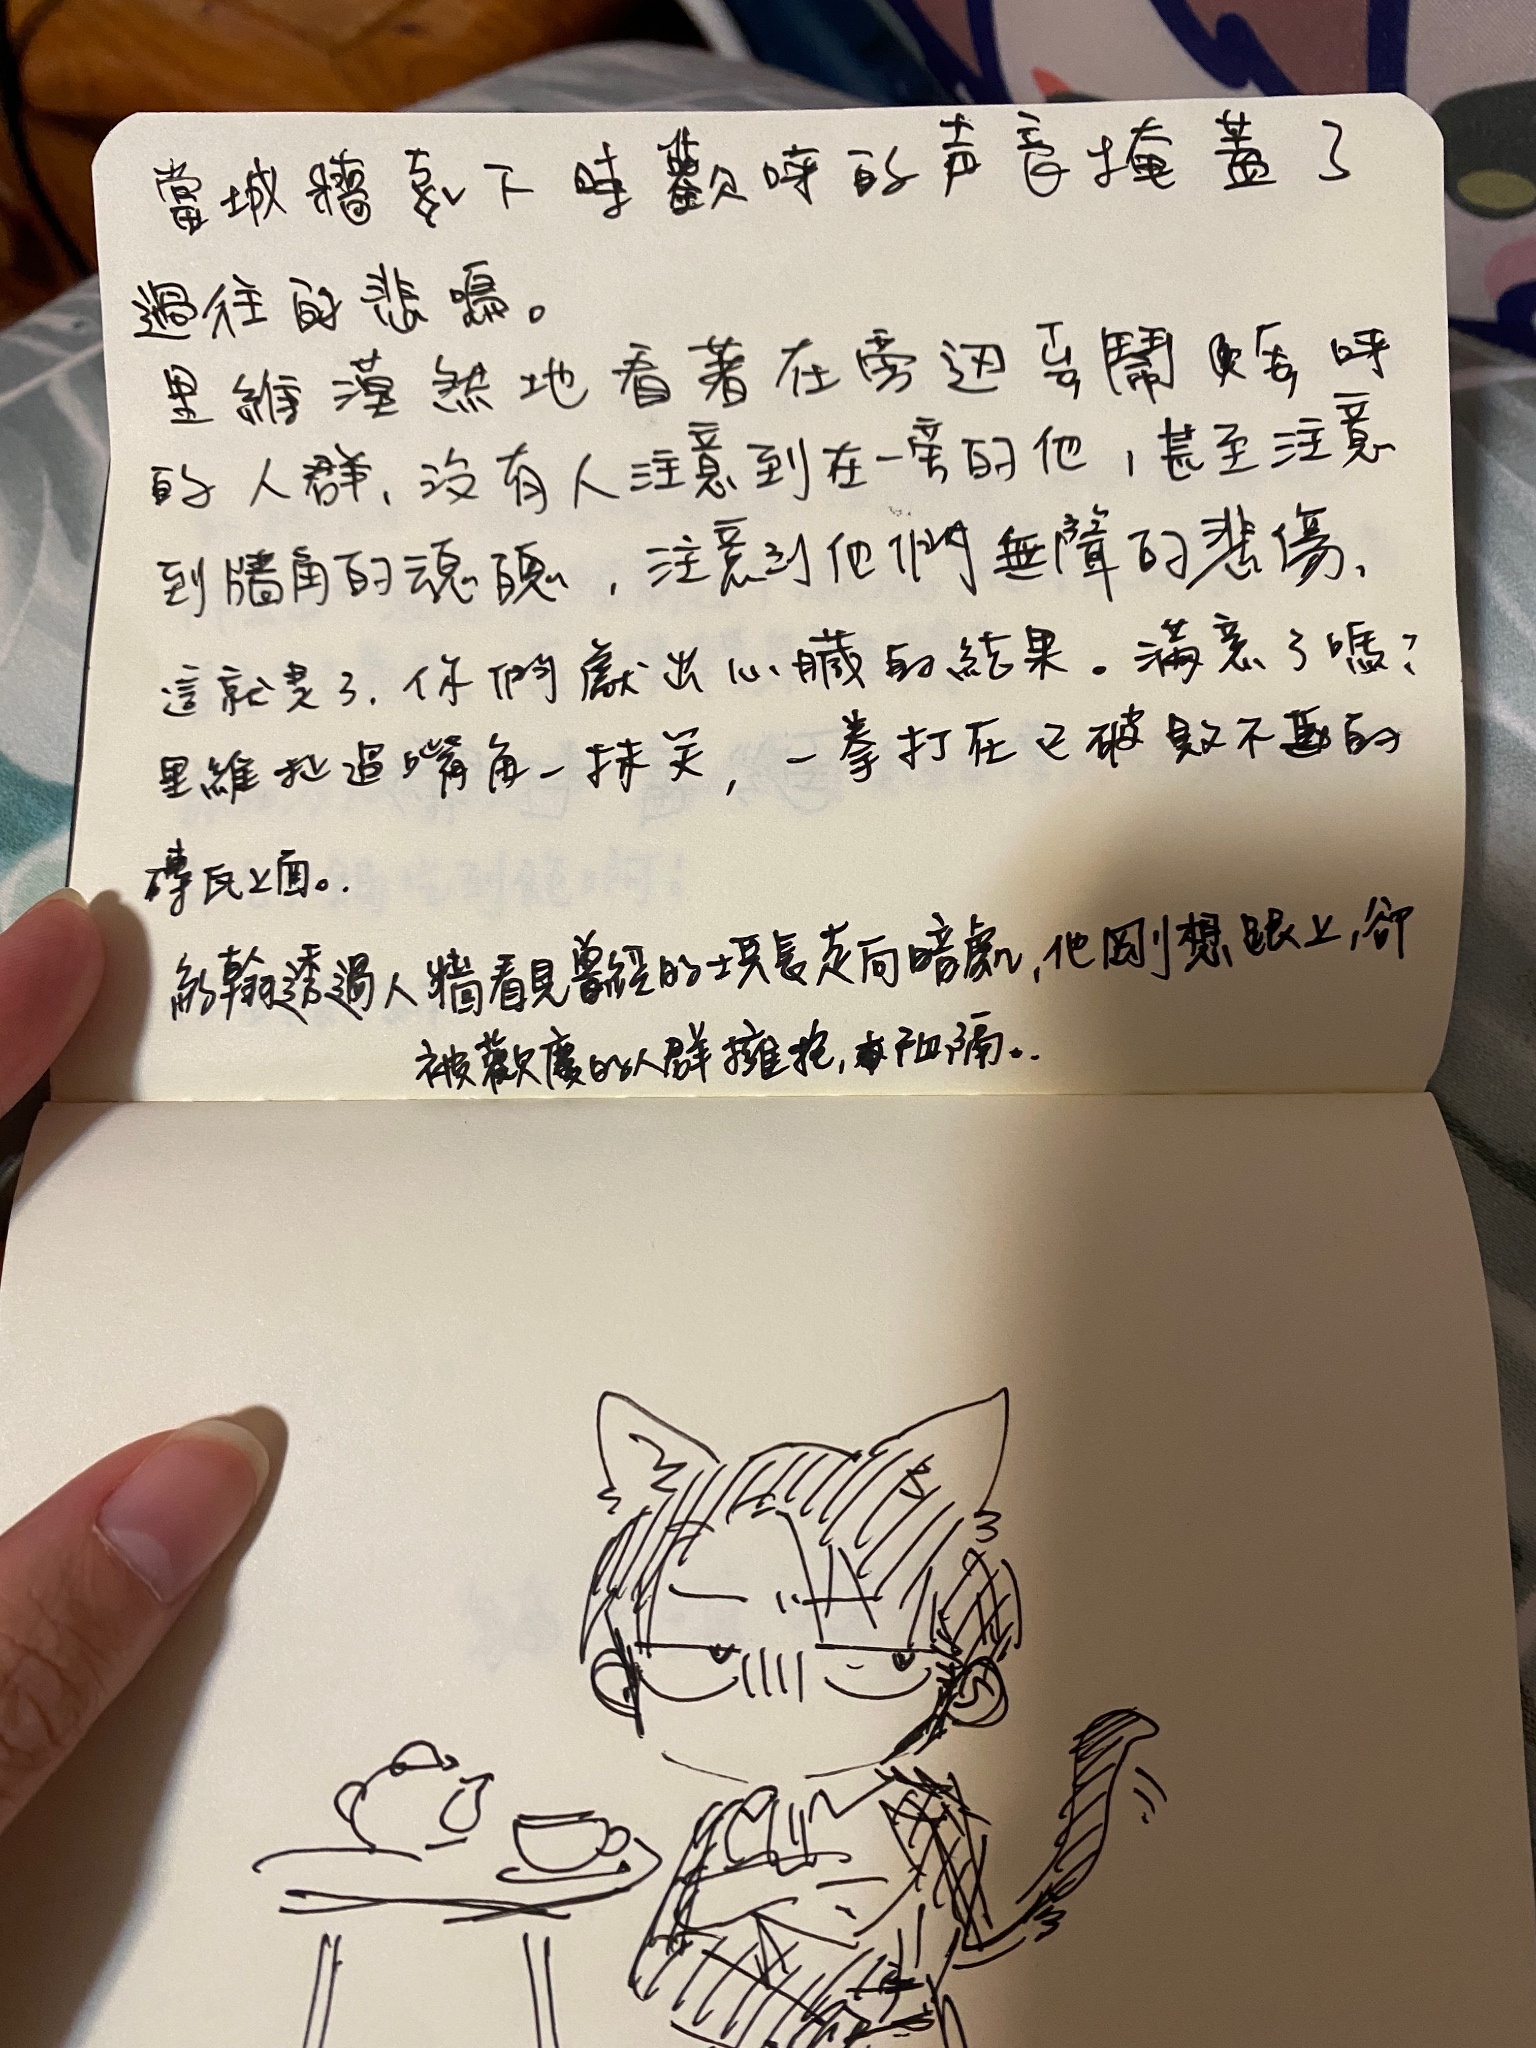 當城牆敲下時歡呼的声音掩蓋了
過往的悲鳴。
里維漠然地看著在旁边喜鬧歡呼
的人群、沒有人注意到在一旁的他，甚至注意
到牆角的魂魄，注意到他們無聲的悲傷、
這就是了、你們獻出心臟的結果。滿意了嗎？
里維扯過嘴角一抹笑，一拳打在已破敗不堪的
磚瓦上面。.
約翰透過人牆看見曾經的士兵長走向暗處，他剛想跟上，卻
被歡慶的人群擁抱，阻隔..